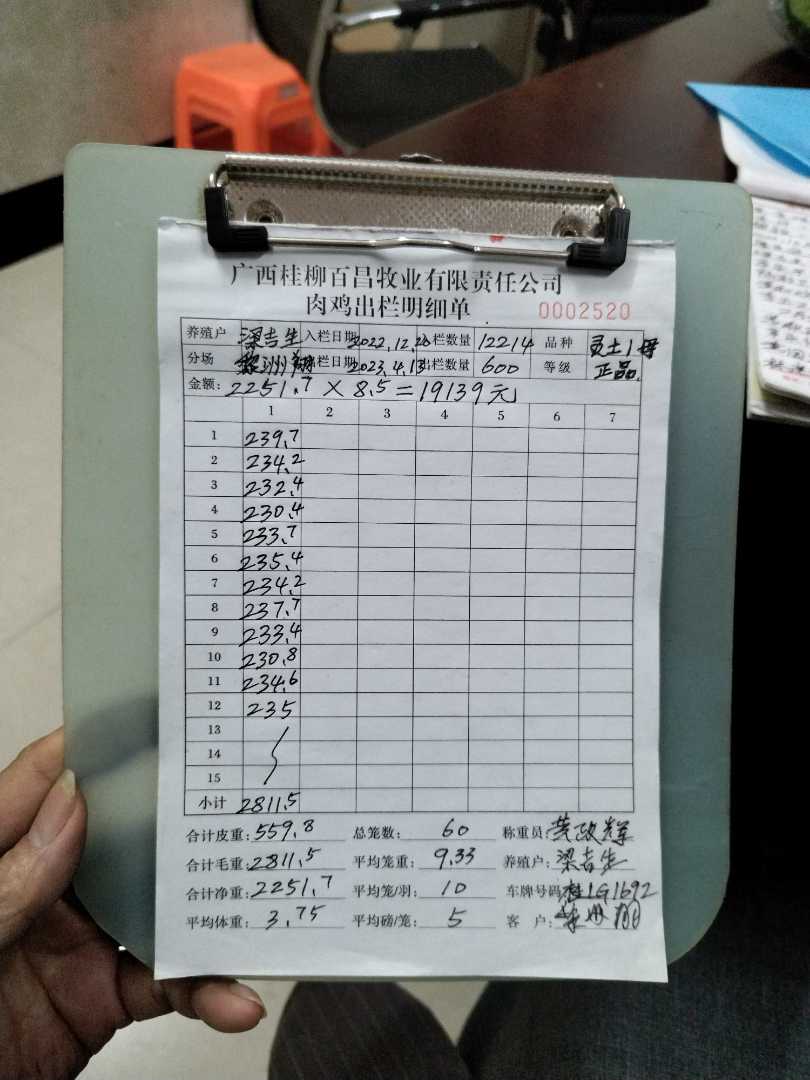 广西桂柳百昌牧业有限责任公司
肉鸡出栏明细单 0002520
养殖户 梁吉生 入栏日期 2022.12.20 入栏数量 12214 品种 灵土1母
分场 出栏日期 2023.4.13 出栏数量 600 等级 正品
金额: 2251.7 × 8.5 = 19139元
1 2 3 4 5 6 7
1 239.7
2 234.2
3 232.4
4 230.4
5 233.7
6 235.4
7 234.2
8 237.7
9 233.4
10 230.8
11 234.6
12 235
13
14
15
小计 2811.5
合计皮重: 559.8 总笼数: 60 称重员:
合计毛重: 2811.5 平均笼重: 9.33 养殖户: 梁吉生
合计净重: 2251.7 平均笼/羽: 10 车牌号码: 桂1G1692
平均体重: 3.75 平均磅/笼: 5 客 户: